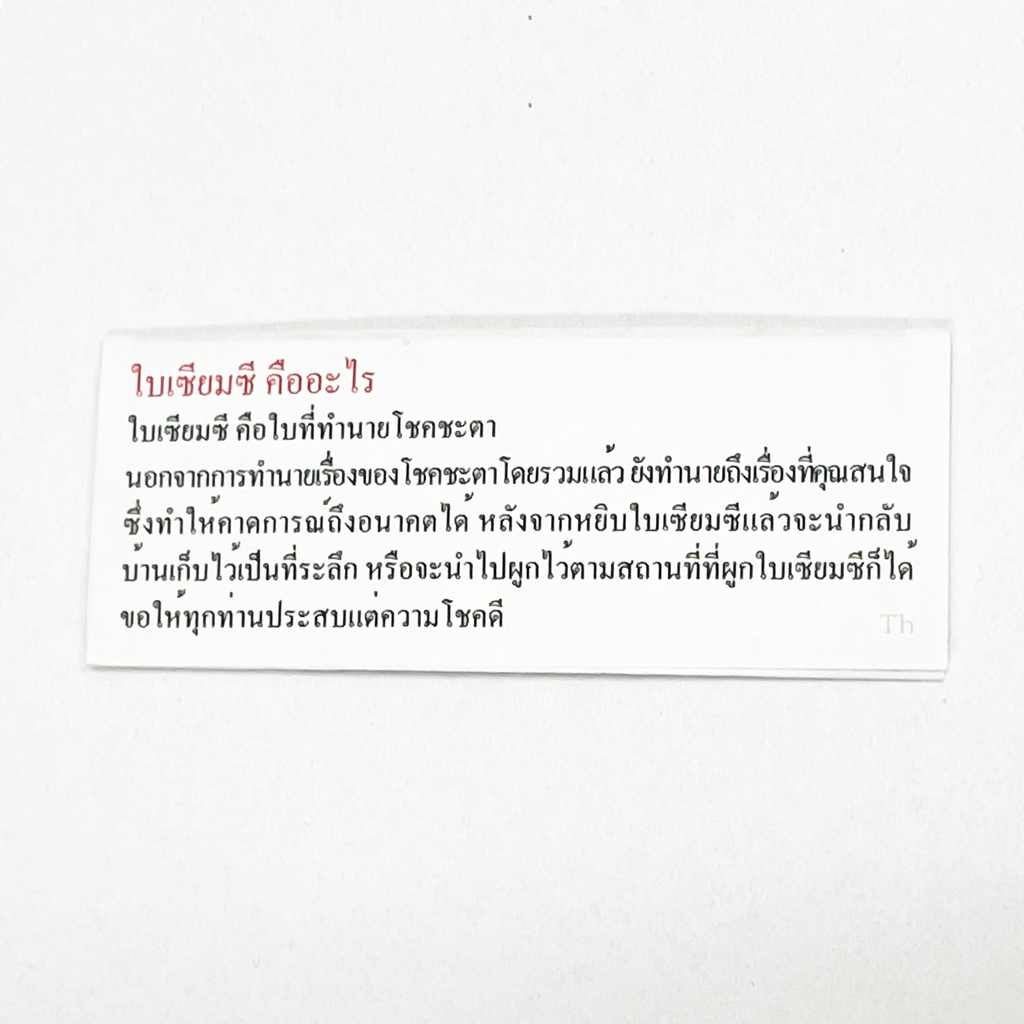 ใบเซียมซี คืออะไร
ใบเซียมซี คือใบที่ทำนายโชคชะตา
นอกจากการทำนายเรื่องของโชคชะตาโดยรวมแล้ว ยังทำนายถึงเรื่องที่คุณสนใจ
ซึ่งทำให้คาดการณ์ถึงอนาคตได้ หลังจากหยิบใบเซียมซีแล้วจะนำกลับ
บ้านเก็บไว้เป็นที่ระลึก หรือจะนำไปผูกไว้ตามสถานที่ที่ผูกใบเซียมซีก็ได้
ขอให้ทุกท่านประสบแต่ความโชคดี
Th